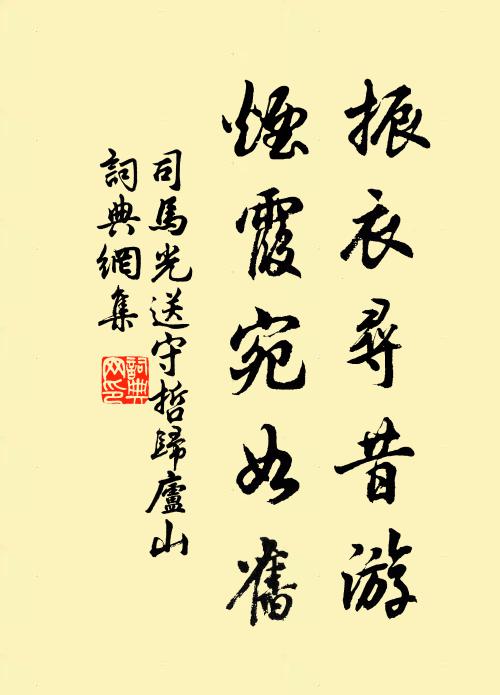 振衣尋昔游
煙霞宛如舊
司馬光送守哲歸廬山
詞典網集
詞典
网印